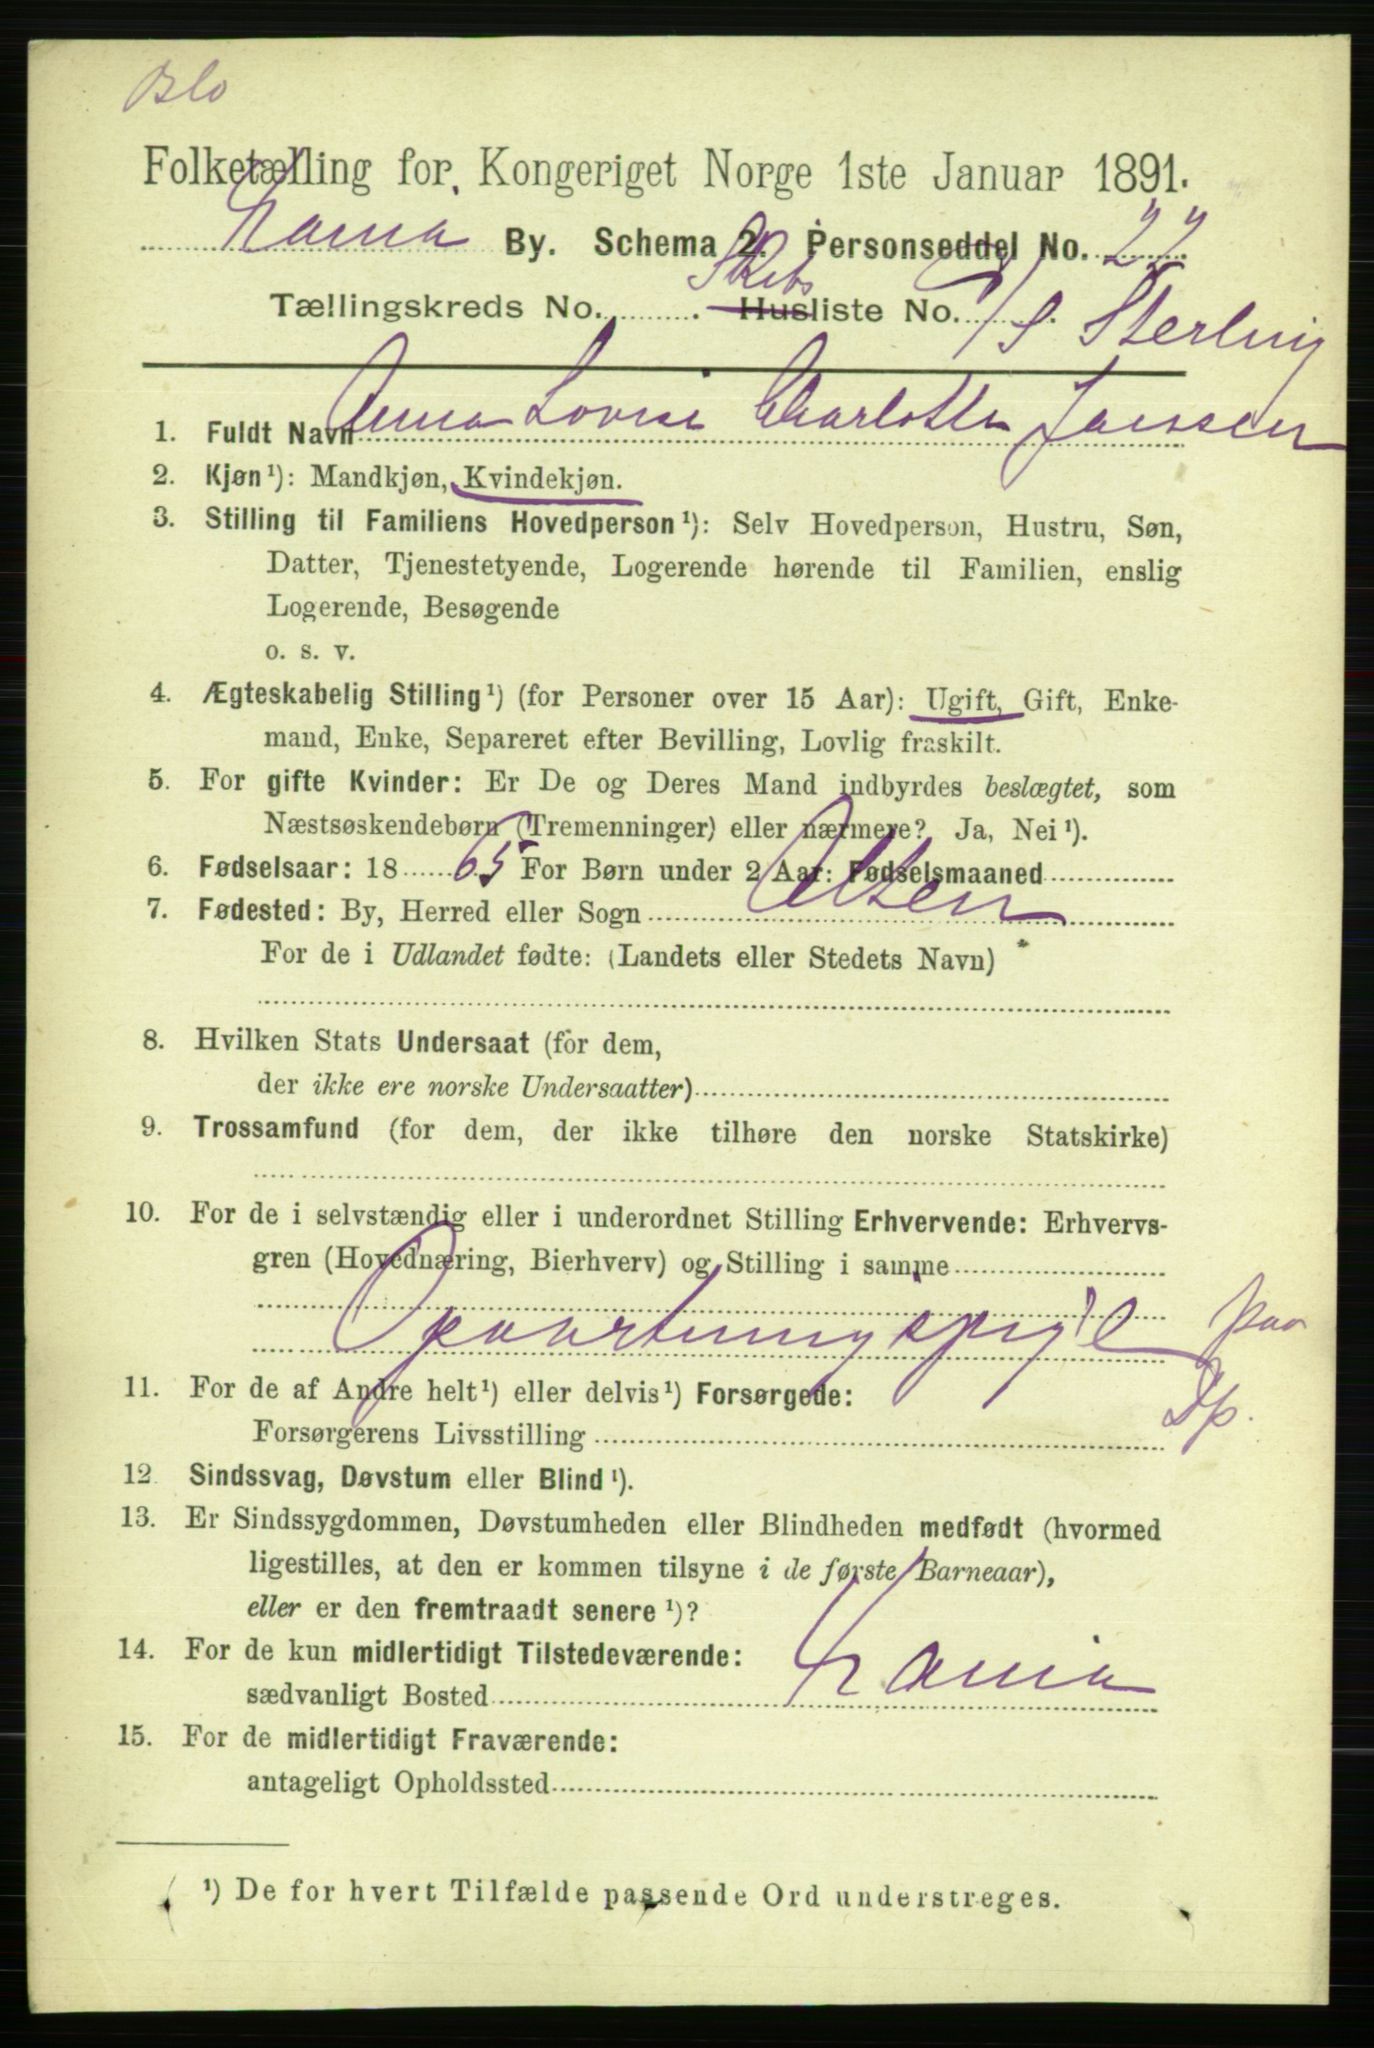 Oslo
Folketælling for Kongeriget Norge 1ste Januar 1891.
Xania By. Schema 2. Personseddel No. 22
Tællingskreds No. . Skibs Husliste No. D/S Sterling
1. Fuldt Navn Anna Lovise Charlotte Janssen
2. Kjøn ¹): Mandkjøn, Kvindekjøn.
3. Stilling til Familiens Hovedperson ¹): Selv Hovedperson, Hustru, Søn,
Datter, Tjenestetyende, Logerende hørende til Familien, enslig
Logerende, Besøgende
o. s. v.
4. Ægteskabelig Stilling ¹) (for Personer over 15 Aar): Ugift, Gift, Enke-
mand, Enke, Separeret efter Bevilling, Lovlig fraskilt.
5. For gifte Kvinder: Er De og Deres Mand indbyrdes beslægtet, som
Næstsøskendebørn (Tremenninger) eller nærmere? Ja, Nei ¹).
6. Fødselsaar: 1865 For Børn under 2 Aar: Fødselsmaaned
7. Fødested: By, Herred eller Sogn Alten
For de i Udlandet fødte: (Landets eller Stedets Navn)
8. Hvilken Stats Undersaat (for dem,
der ikke ere norske Undersaatter)
9. Trossamfund (for dem, der ikke tilhøre den norske Statskirke)
10. For de i selvstændig eller i underordnet Stilling Erhvervende: Erhvervs-
gren (Hovednæring, Bierhverv) og Stilling i samme
Opvartningspige paa
Dp.
11. For de af Andre helt ¹) eller delvis ¹) Forsørgede:
Forsørgerens Livsstilling
12 Sindssvag, Døvstum eller Blind ¹).
13. Er Sindssygdommen, Døvstumheden eller Blindheden medfødt (hvormed
ligestilles, at den er kommen tilsyne i de første Barneaar),
eller er den fremtraadt senere ¹)?
14. For de kun midlertidigt Tilstedeværende:
sædvanligt Bosted Xania
15. For de midlertidigt Fraværende:
antageligt Opholdssted
¹) De for hvert Tilfælde passende Ord understreges.